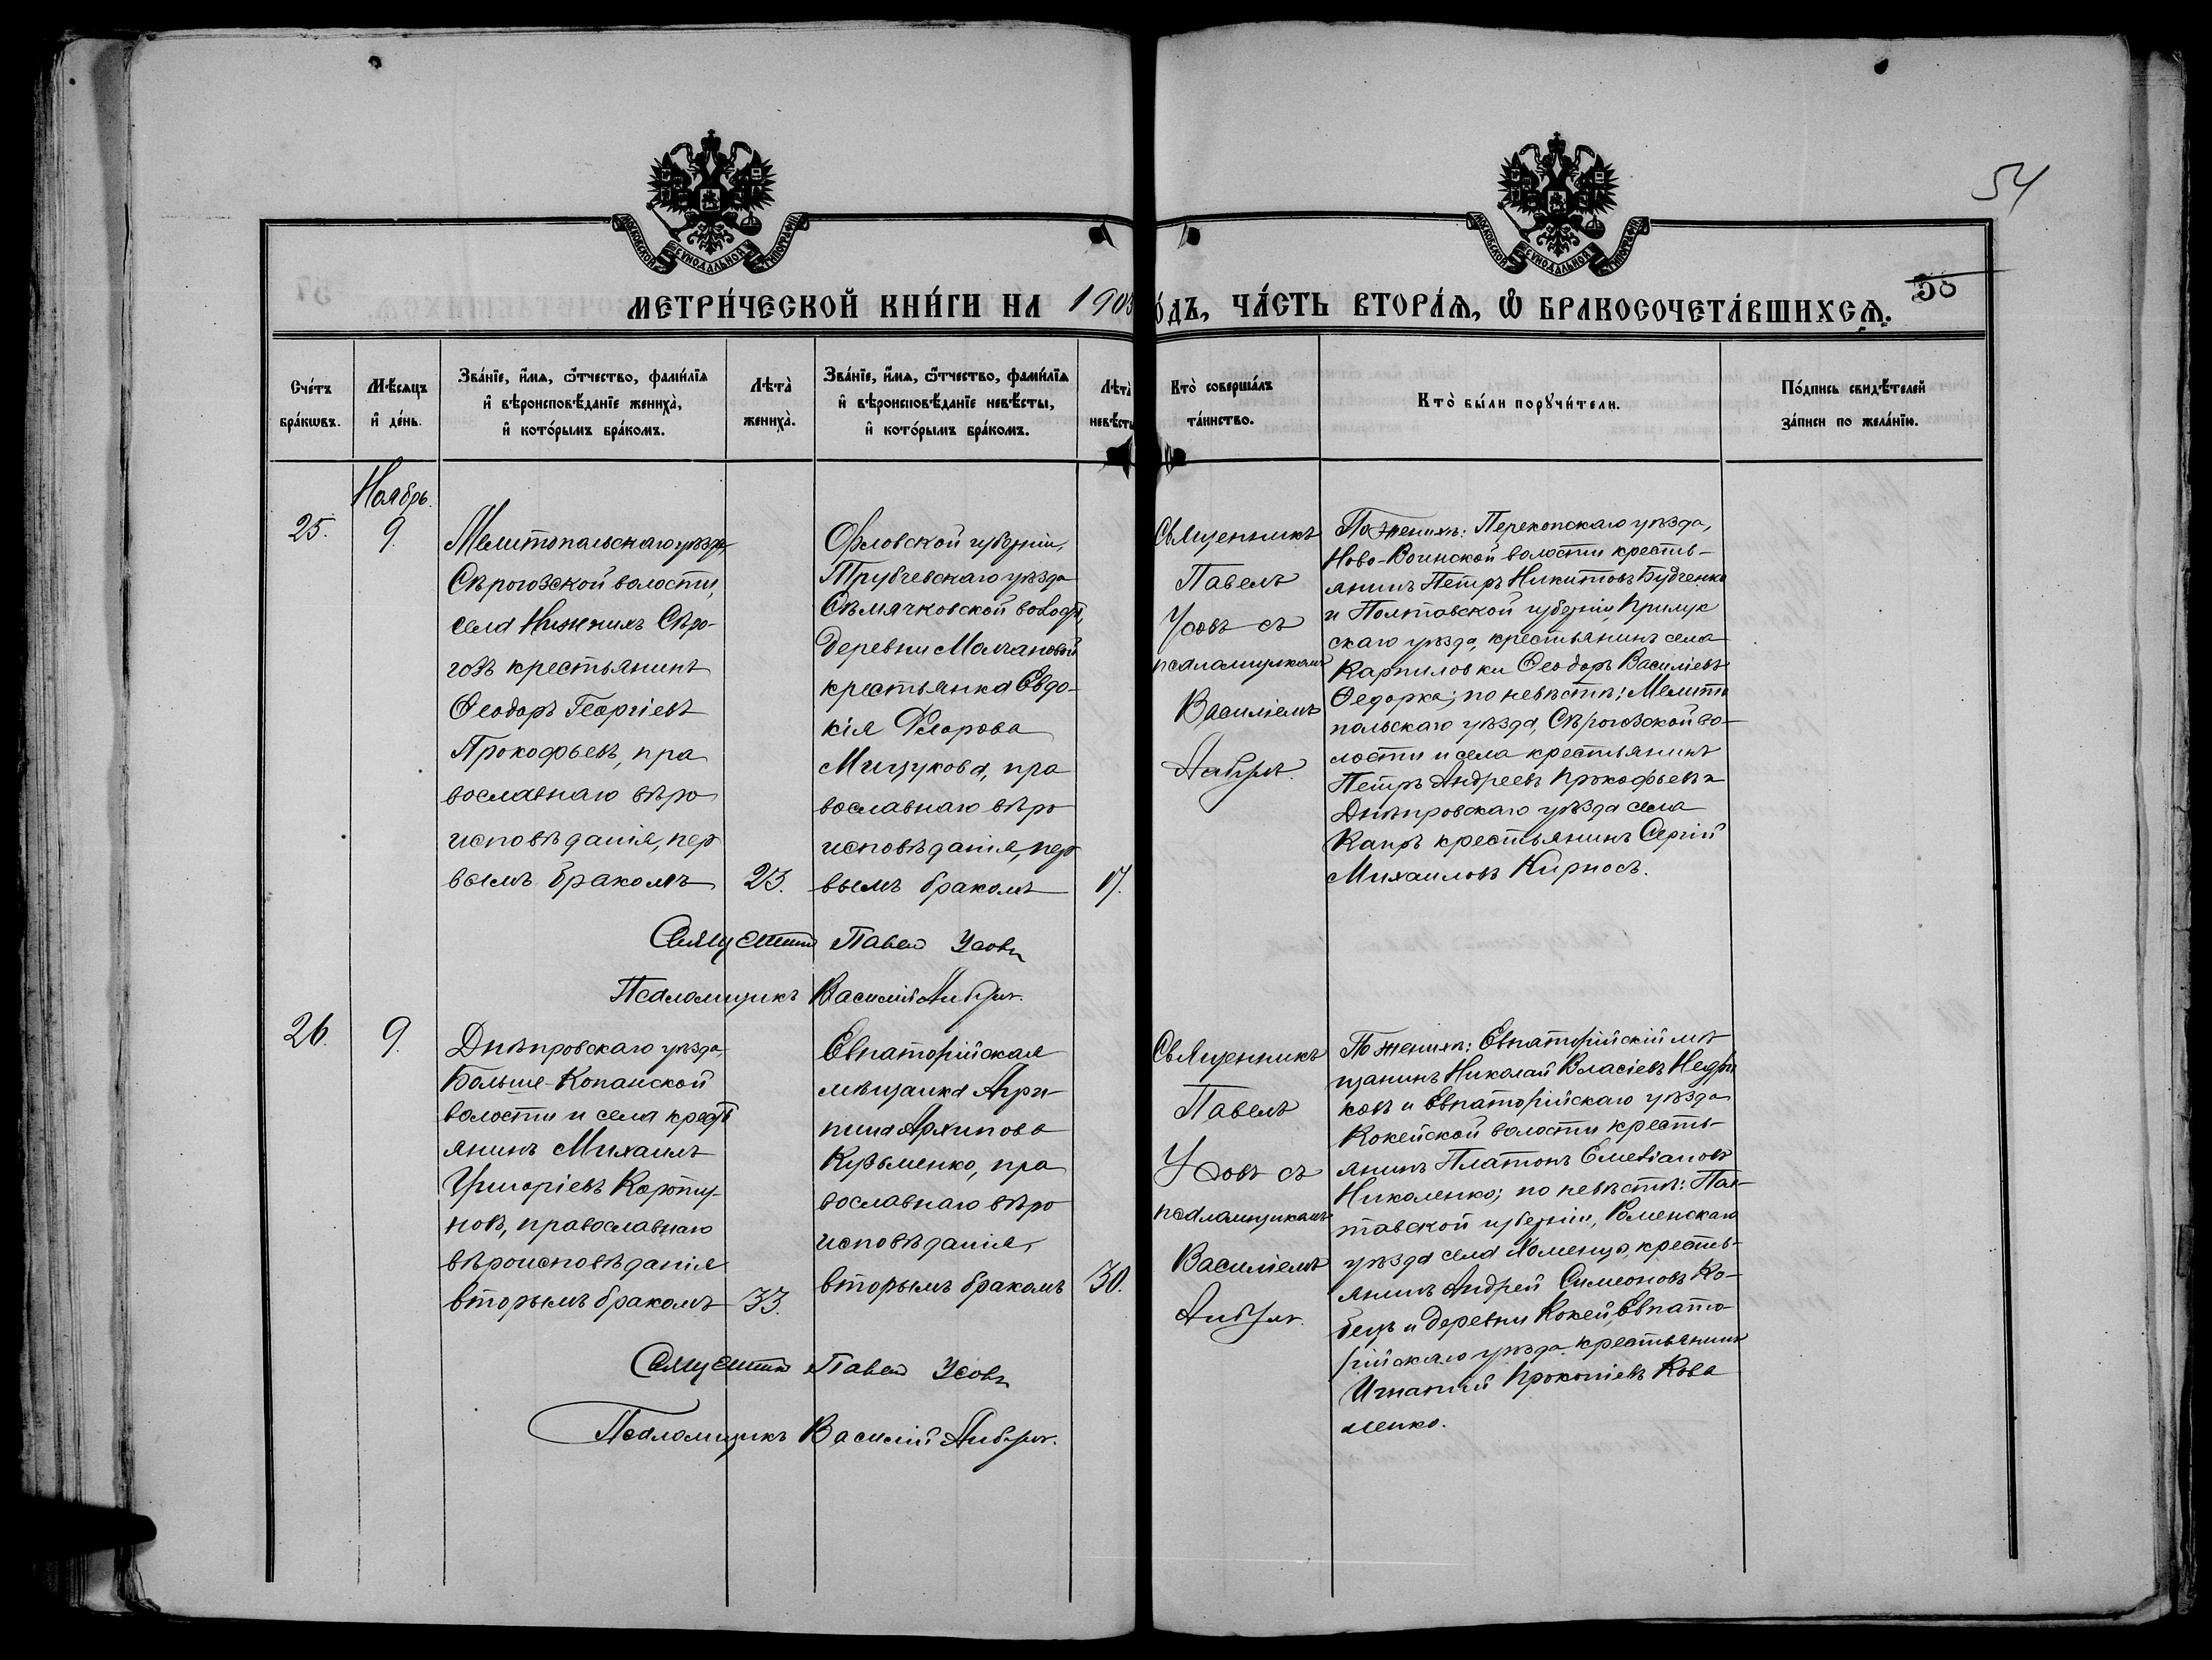 54
58
МЕТРИ́ЧЕСКОЙ КНИ́ГИ НА 1903
О́ДЪ, ЧА́СТЬ ВТОРА́Ѧ, Ѡ҆ БРАКОСОЧЕТА́ВШИХСѦ.
Сче́тъ бра́кѡвъ.
Мѣ́сѧцъ и҆ де́нь.
Зва́нїе, и҆́мѧ, ѻ҆́тчество, фами́лїѧ
и҆ вѣроисповѣ́данїе жениха̀,
и҆ кото́рымъ бра́комъ.
Лѣта̀ жениха̀.
Зва́нїе, и҆́мѧ, ѻ҆́тчество, фами́лїѧ
и҆ вѣроисповѣ́данїе невѣ́сты,
и҆ кото́рымъ бра́комъ.
Лѣта̀ невѣ́сты
Кто̀ соверша́лъ
та́инство.
Кто̀ бы́ли порꙋчи́тели.
По́дпись свидѣ́телей
за́писи по жела́нїю.
Ноябрь.
25.
9.
Мелитопольскаго уѣзда,
Сѣрогозской волости,
села Нижнихъ Сѣро-
гозъ крестьянинъ
Ѳеодоръ Георгіевъ
Прокофьевъ, пра
вославнаго вѣро
исповѣданія, пер
вымъ бракомъ
23.
Орловской губерніи,
Трубчевскаго уѣзда
Сѣмячковской волости,
деревни Молчановой
крестьянка Евдо-
кія Флорова
Мищукова, пра
вославнаго вѣро
исповѣданія, пер
вымъ бракомъ
17.
Священникъ
Павелъ
Усовъ съ
псаломщикомъ
Василіемъ
По женихѣ: Перекопскаго уѣзда,
Ново-Воинской волости кресть-
янинъ Петръ Никитовъ Будченко
и Полтавской губерніи, Прилук
скаго уѣзда, крестьянинъ села
Карпиловки Ѳеодоръ Василіевъ
Ѳедорка; по невѣстѣ: Мелито
польскаго уѣзда, Сѣрогозской во-
лости и села крестьянинъ
Петръ Андреевъ Прокофьевъ и
Днѣпровскаго уѣзда села
Каиръ крестьянинъ Сергій
Михаиловъ Кирносъ.
Священникъ Павелъ Усовъ
Псаломщикъ Василій
26.
9.
Днѣпровскаго уѣзда,
Больше-Копанской
волости и села кресть
янинъ Михаилъ
Григоріевъ Корту-
новъ, православнаго
вѣроисповѣданія
вторымъ бракомъ
33.
Евпаторійская
мѣщанка Агри-
пина Архипова
Кузьменко, пра
вославнаго вѣро
исповѣданія,
вторымъ бракомъ
30.
Священникъ
Павелъ
Усовъ съ
псаломщикомъ
Василіемъ
По женихѣ: Евпаторійскій мѣ
щанинъ Николай Власіевъ
ковъ и Евпаторійскаго уѣзда
Кокейской волости кресть-
янинъ Платонъ Емеліановъ
Николенко; по невѣстѣ: Пол-
тавской губерніи, Роменскаго
уѣзда села Хоменцо, кресть-
янинъ Андрей Симеоновъ Ко-
бецъ и деревни Кокей, Евпато-
рійскаго уѣзда крестьянинъ
Игнатій Прокопіевъ Кова
ленко.
Священникъ Павелъ Усовъ
Псаломщикъ Василій